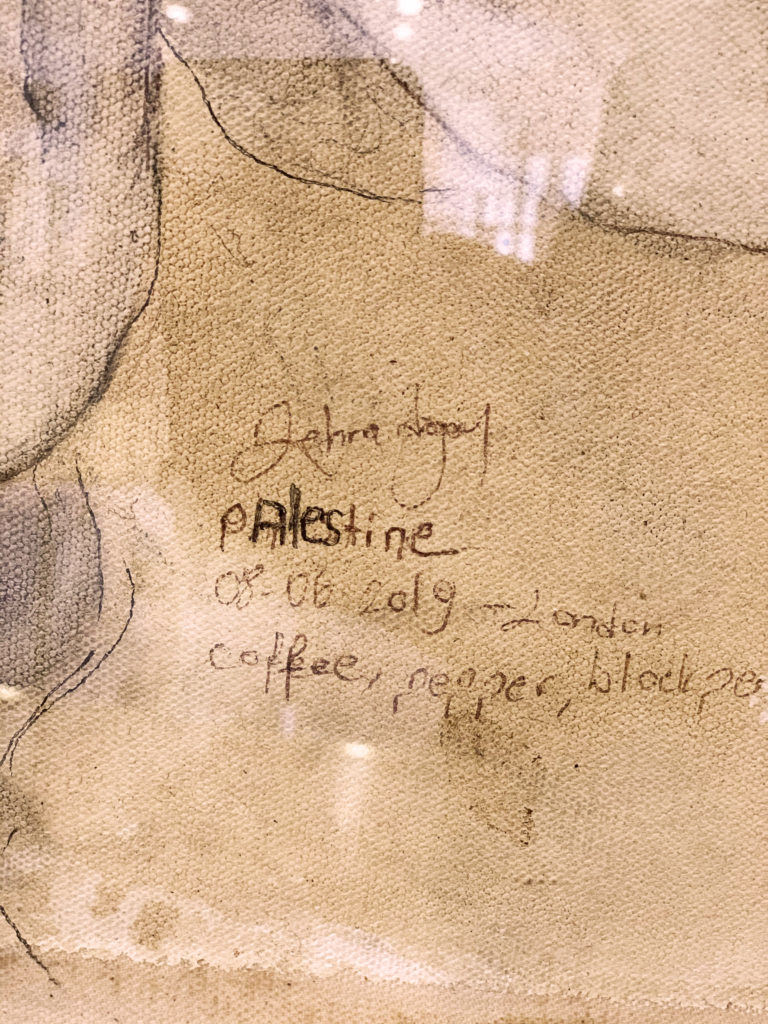 Zehra doğan
pAlestine
08-06 2019 -London
coffee, pepper, black pe